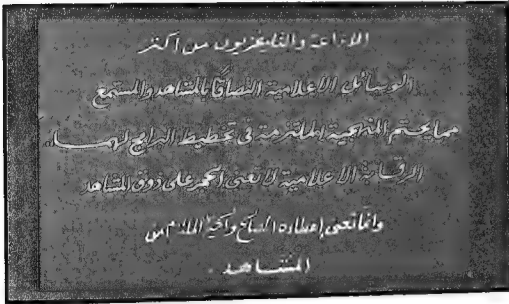 الاذاعة والتلفزيون من اكثر
الوسائل الاعلامية التصاقًا بالمشاهد والمستمع
مما يحتم المنهجية الملتزمة فى تخطيط البرامج لهما ..
الرقابة الاعلامية لا تعنى الحجر على ذوق المشاهد
وانما تعنى إعطاءه الصالح والملائم من
المشاهد .